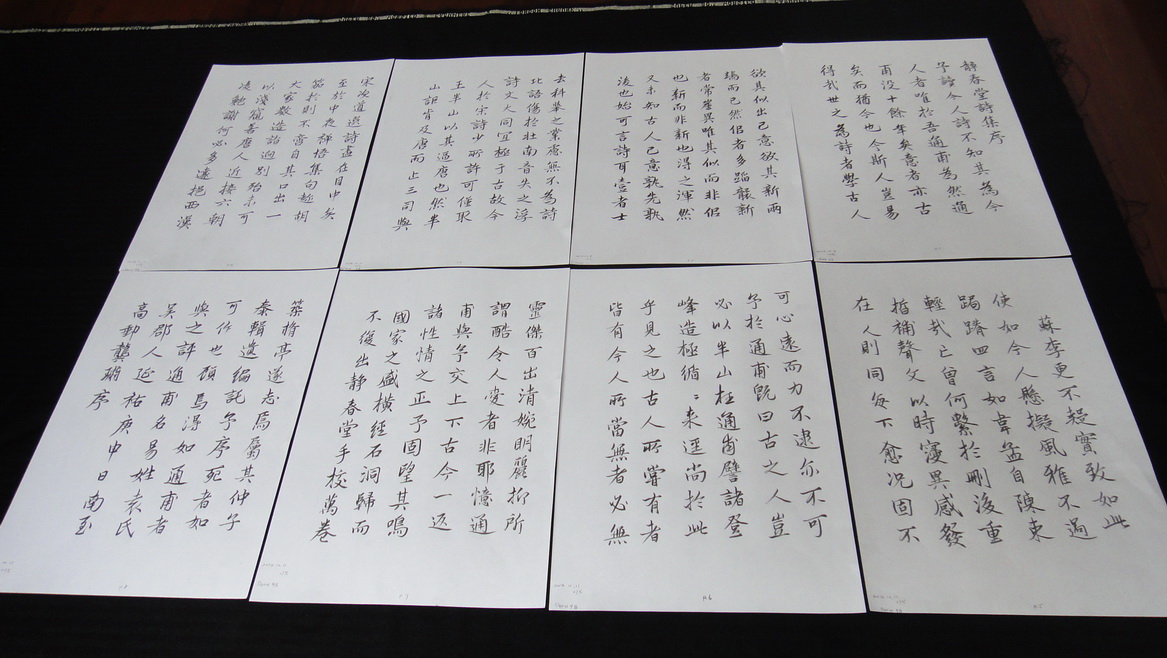 静春堂詩集序
予讀今人詩不知其為今
人者唯於吾通甫為然通
甫没十餘年矣意者亦古
矣而猶今也今斯人豈易
得哉世之為詩者學古人
欲其似出己意欲其新兩
端而已然侶者多蹈襲新
者常崖異唯其似而非侣
也新而非新也得之渾然
又未知古人己意孰先孰
後也始可言詩耳曩者士
去科舉之業處無不為詩
北語傷於壯南音失之浮
詩文大同宜極于古故今
人於宋詩少所許可僅取
王半山以其逼唐也然半
山詎肯及唐而止三司與
宋次道選詩盡在目中矣
至於中夜歸悟集句趂胡
笳於則不啻自其口出一
大家數造詣迥別殆未可
以淺窺善唐人近接六朝
凌鮑謝何必多遠挹西漢
蘇李更不疑實致如此
使如今人懸擬風雅不過
跼蹐四言如韋孟自陳東
輕哉亡曾何繫於刪後重
聲文以時寖異感發
在人則同每下愈况固不
可心遠而力不逮尔不可
予於通甫既曰古之人豈
必以半山柱通甫譬諸登
峰造極循〻来逕尚於此
乎見之也古人所嘗有者
皆有今人所當無者必無
靈傑百出清婉明麗抑所
謂酷令人愛者非耶憶通
甫與予交上下古今一返
諸性情之正予固望其鳴
國家之盛橫經石洞歸而
不復出静春堂手校萬卷
築指亭遂忘焉屬其仲子
泰輯遺編託予序死者如
可作也顧焉得如通甫者
與之評通甫名易姓袁氏
吳郡人延祐庚申日南至
高郵龔璛序